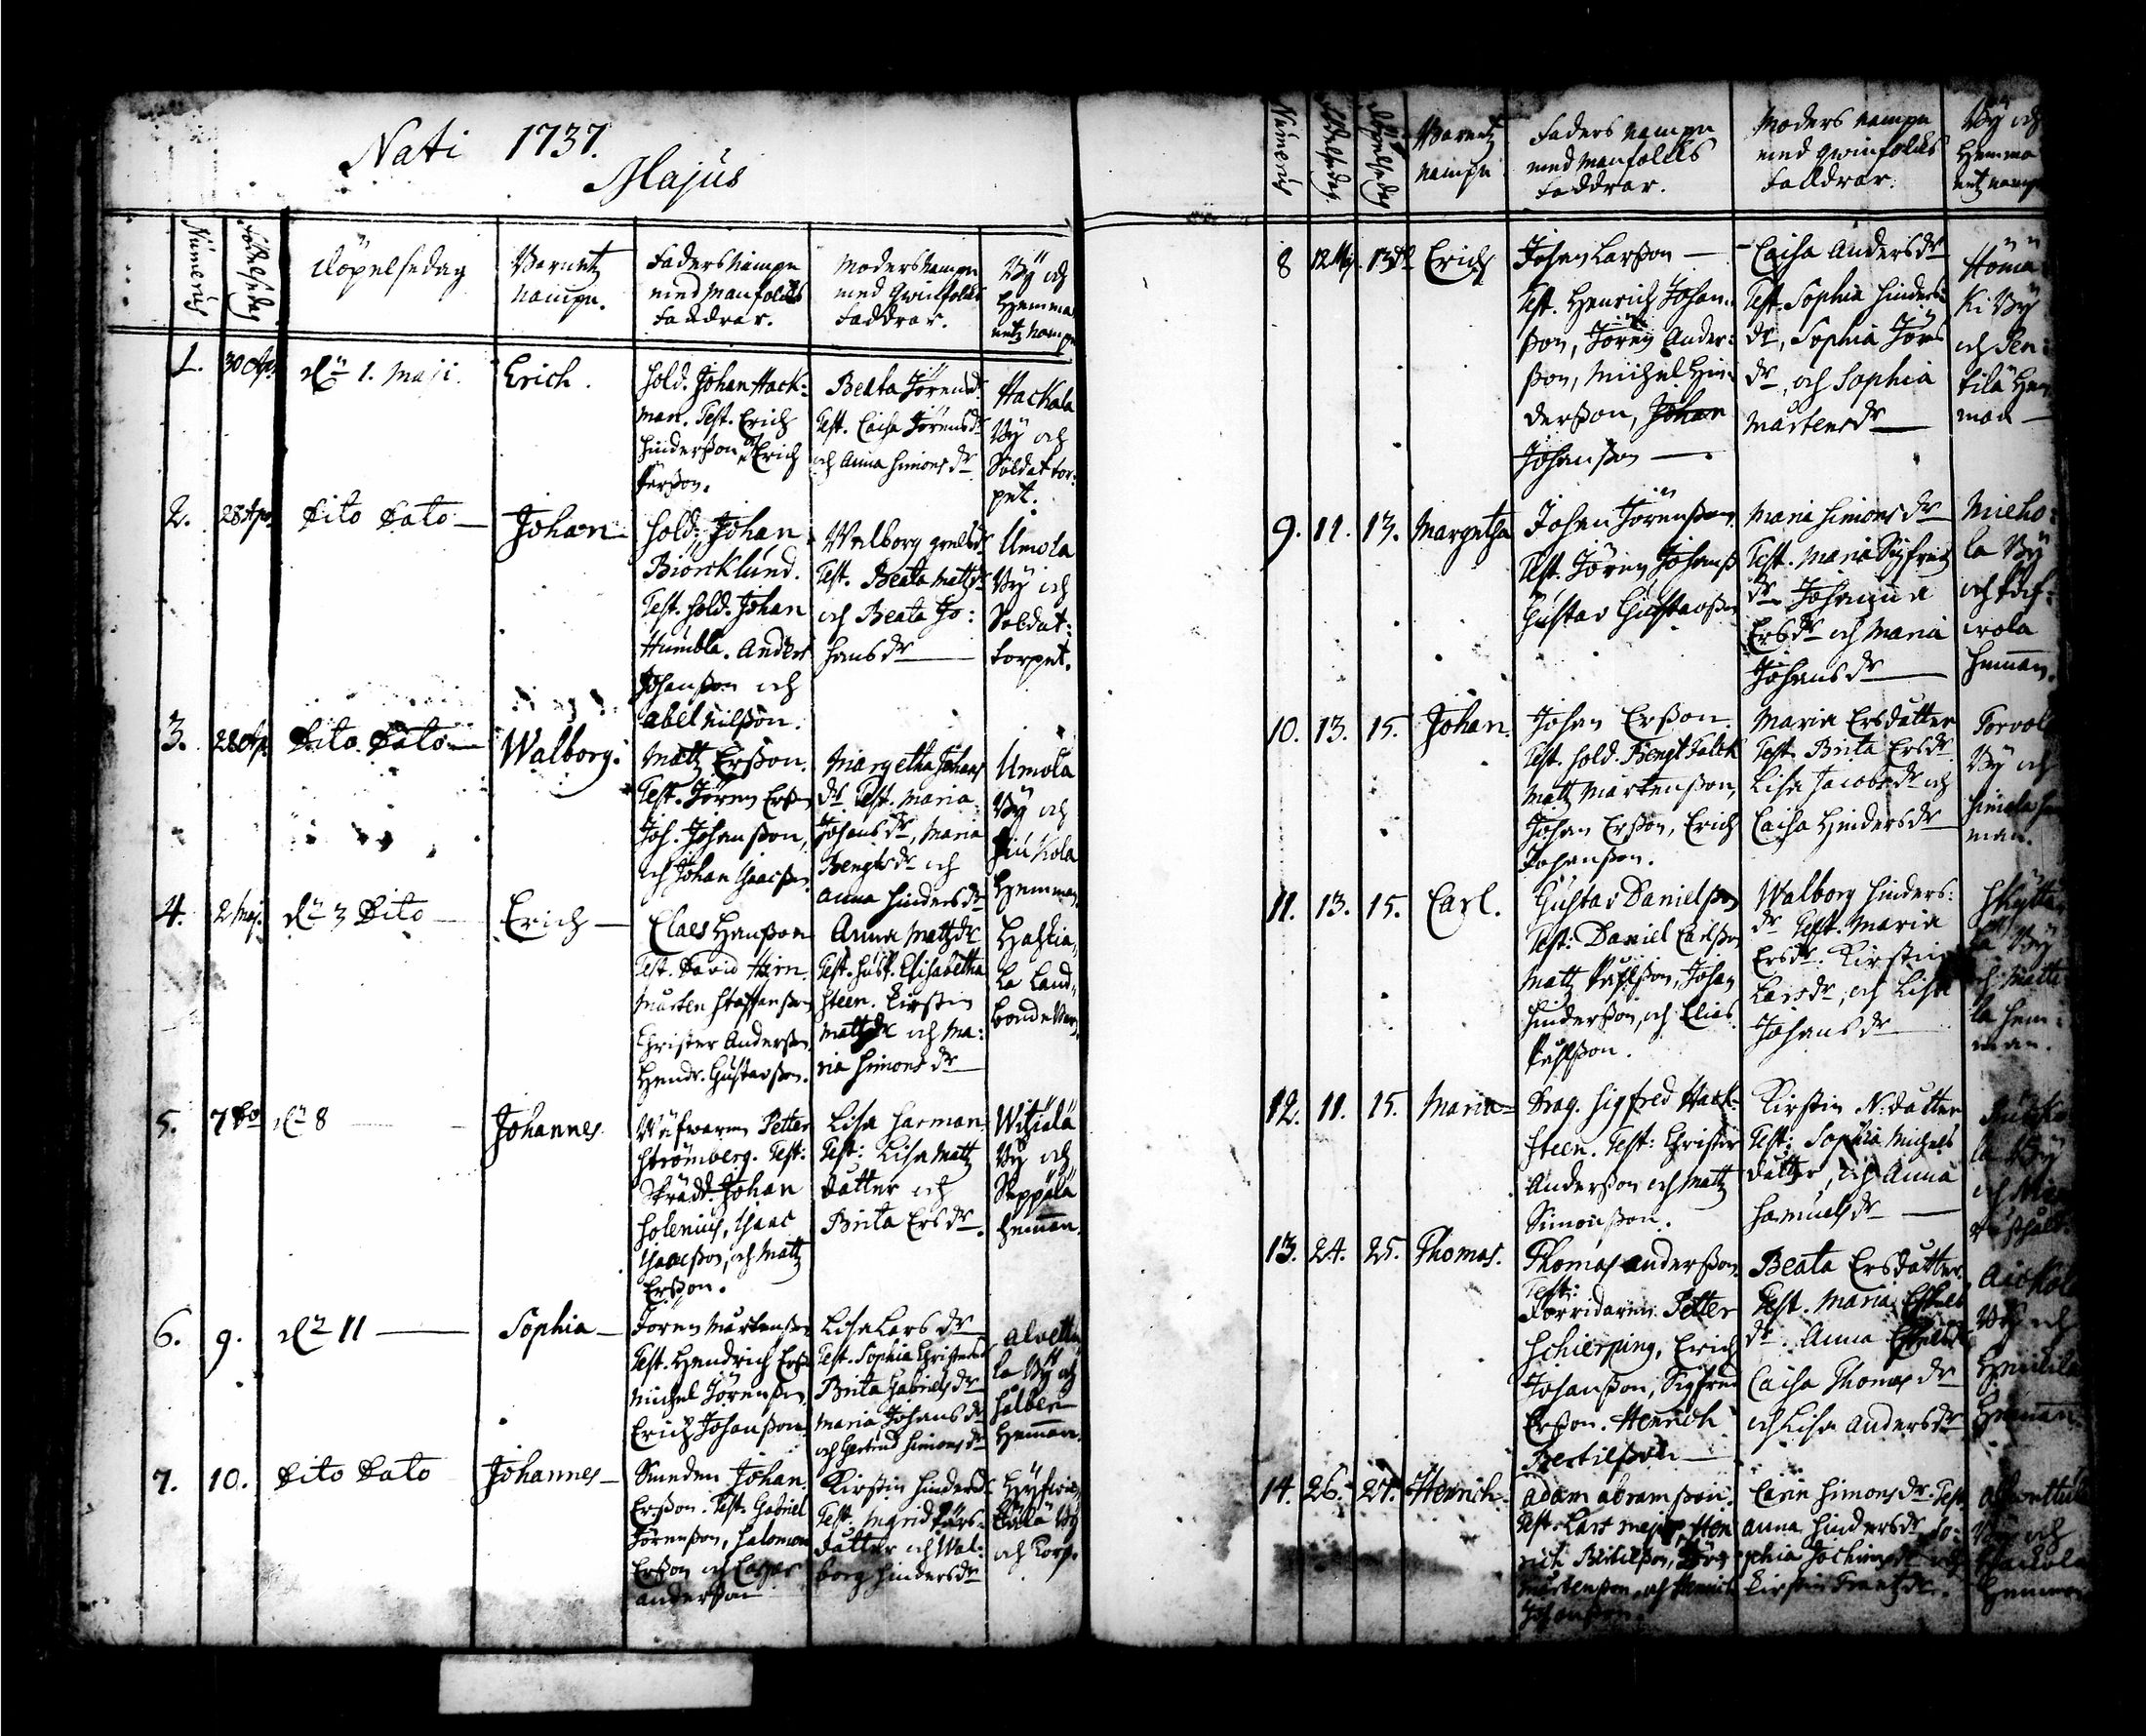 Nati 1737.
Majus
Numerus
Födelsedag
Döpelsedag
Barnetz
nampn.
Faders nampn
med manfolcks
Faddrar.
Moders nampn
med qwinfolcks
Faddrar.
By och
Hemma
netz namp
1.
30 Apr.
dn 1. Maji.
Erich.
Sold. Johan Hack-
man. Test. Erich
Hinderßon, Erich
Perßon.
Beata Jörensdr
Test. Caisa Jörensdr
och Anna Simonsdr
Hackala
By och
Soldat tor-
pet.
2.
28 Apr.
Dito Dato
Johan
Sold. Johan
Biörcklund.
Test. Sold. Johan
Humbla. Anders
Johanßon och
Abel Nilßon.
Walborg
Test. Beata Mattzdr
och Beata Jo:
hansdr
Umola
By och
Soldat:
torpet.
3.
28 Ap.
Dito Dato
Walborg.
Mattz Erßon.
Test. Jören Erßon
Joh. Johanßon,
och Johan Isacßon
Margetha Johans
dr Test. Maria
Johansdr, Maria
Bengtsdr och
Anna Hindersdr
Umola
By och
Hemman
4.
2 Maj.
dn 3 Dito
Erich
Claes Hanßon
Test. David Hirn
Mårten Staffanßon
Christer Anderßon
Hendr. Gustavßon.
Anna Mattzdr
Test. Hust. Elisabetha
Steen. Kirstin
Mattzdr och Ma:
ria Simonsdr
Land-
bonde
5.
7 Do
dn 8
Johannes
Petter
Strömberg. Test:
Skrädd. Johan
Solenius, Isaac
Isaacßon, och Mattz
Erßon.
Lisa Harman
Test: Lisa Mattz
datter och
Brita Ersdr.
Witiälä
By och
Seppälä
Hemman.
6.
9.
dn 11
Sophia
Jören Mårtenßon
Test. Hendrich Erßon
Michel Jörenßon,
Erich Johanßon
Lisa Larsdr
Test. Sophia Christersdr
Brita Gabrielsdr
Maria Johansdr
och Gertrud Simonsdr
Alvettu
la By och
Hemman.
7.
10.
Dito Dato
Johannes
Smeden Johan
Erßon. Test. Gabriel
Jörenßon, Salomon
Erßon och Casper
Anderßon
Kirstin Hindersdr
Test. Ingrid Lars-
datter och Wal-
borg Hindersdr
By
och Torp.
Numerus
Födelsedag
Döpelsedag
Barnetz
nampn
Faders nampn
med manfolcks
Faddrar.
Moders nampn
med qwinfolcks
Faddrar.
By och
Hemma
netz namp
8
12 Maj.
13de
Erich
Johan Larßon
Test. Henrich Johan-
ßon, Jören Ander-
ßon, Michel Hin-
derßon, Johan
Johanßon
Caisa Andersdr
Test. Sophia Hinders-
dr, Sophia Jörs
dr, och Sophia
Mårtensdr
By
och Pen-
tilä Hem
man
9.
11.
13.
Margetha
Johan Jörenßon
Test. Jören Johanß
Gustav Gustavßon
Maria Simonsdr
Test. Maria Sigfreds
dr Johanna
Ersdr och Maria
Johansdr
Mieho-
la By
och
Hemman.
10.
13.
15.
Johan.
Johan Erßon.
Test. Sold. Bengt Falck
Mattz Mårtenßon,
Johan Erßon, Erich
Johanßon.
Maria Ersdatter
Test. Brita Ersdr
Lisa Jacobsdr och
Caisa Hindersdr
By och
man.
11.
13.
15.
Carl.
Gustav Danielßon
Test: Daniel Carlßon
Mattz Påhlßon, Johan
Hinderßon, och Elias
Påhlßon.
Walborg Hinders:
dr Test. Maria
Ersdr. Kirstin
Larsdr, och Lisa
Johansdr
la By
och Matti
la Hem-
man.
12.
11.
15.
Maria
Drag. Sigfred Hack-
steen. Test: Christer
Anderßon och Mattz
Simonßon.
Kirstin N. datter
Test: Sophia Michels
datter, och Anna
Samuelsdr
la By
och
13.
24.
25.
Thomas.
Thomas Anderßon.
Test:
Petter
Schierping, Erich
Johanßon, Sigfred
Erßon. Henrich
Bertilßon
Beata Ersdatter.
Test. Maria Eskels
dr. Anna Eskelsdr
Caisa Thomasdr
och Lisa Andersdr
By och
Heickilä
Hemman.
14.
26.
27.
Henrich.
Adam Abramßon.
Test. Lars Hen
rich Bertilßon,
Mårtenßon, och Henrich
Johanßon.
Carin Simonsdr. Test.
Anna Hindersdr So-
phia Jochimsdr och
Kirstin Frantzdr.
By och
Hemman